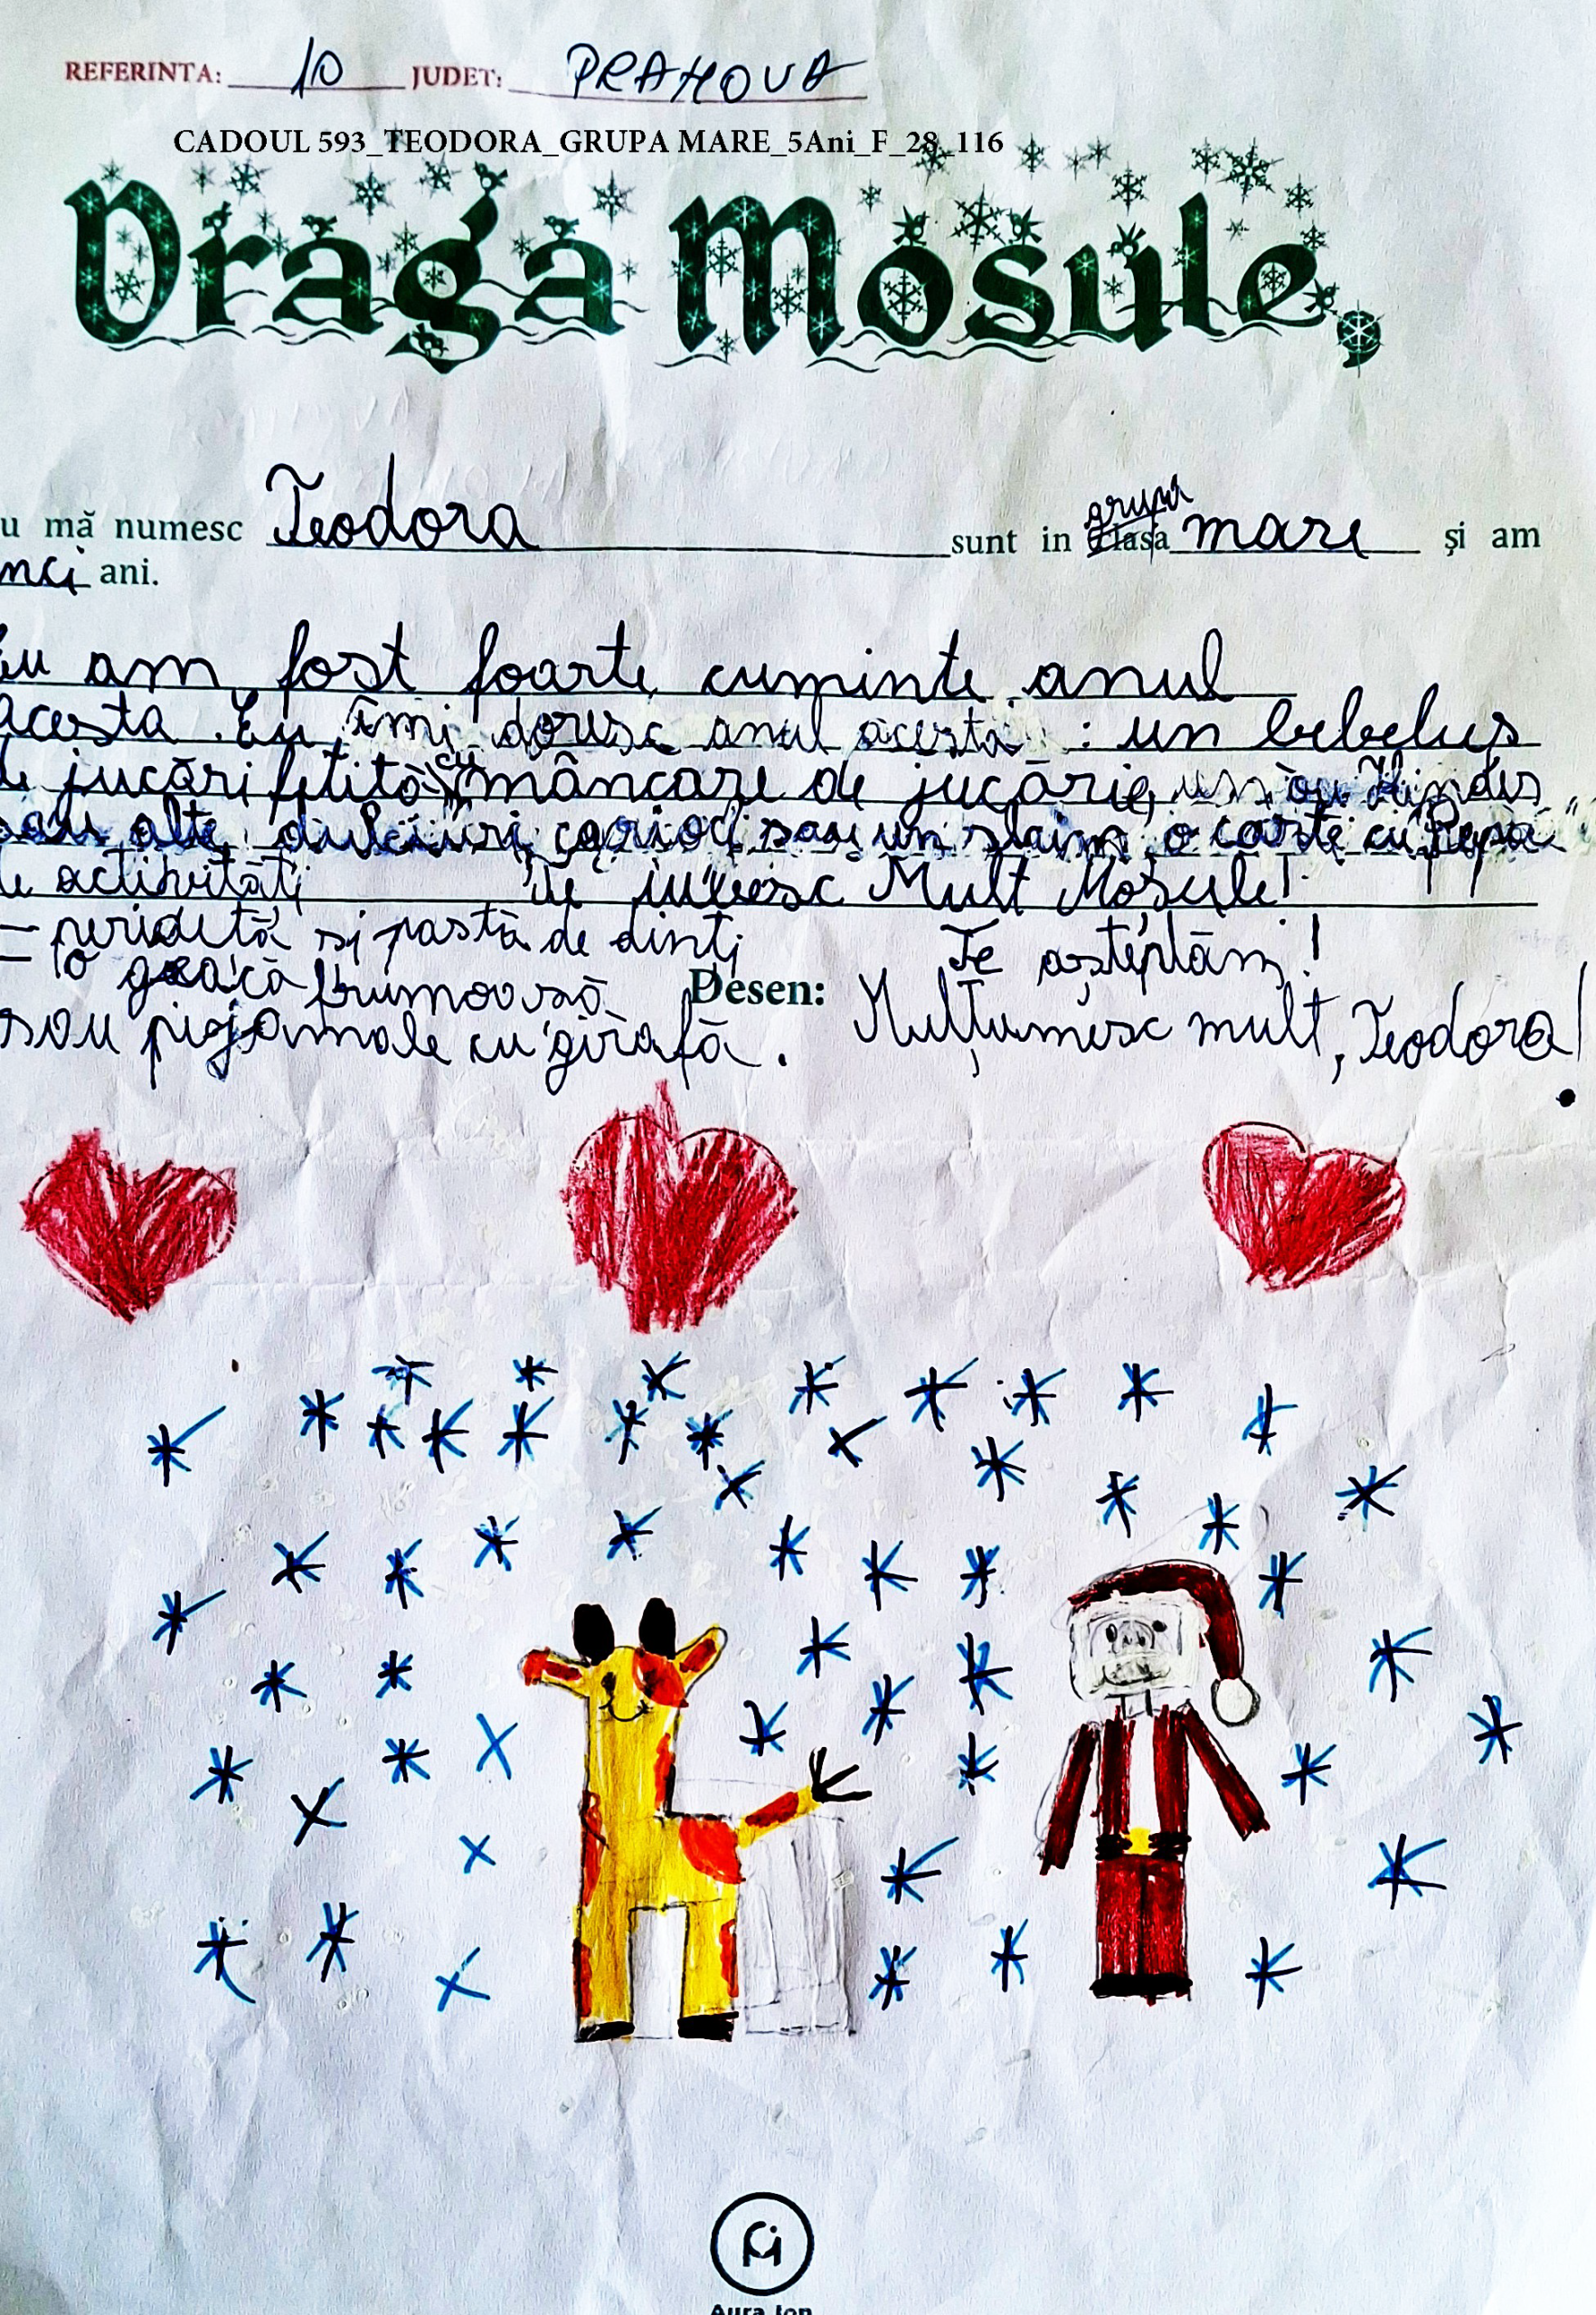 REFERINTA: 10 JUDET: PRAHOVA
CADOUL 593_TEODORA_GRUPA MARE_5Ani_F_28_116
Draga Mosule,
u mă numesc Teodora sunt in clasa grupa mare și am
nci ani.
Eu am fost foarte cuminte anul
acesta. Eu îmi doresc anul acesta : un bebeluș
de jucări fetită cu mâncare de jucărie, un ou Kinder
sau alte dulciuri, carioci sau un slaim, o carte cu "Pepa"
de activități Te iubesc Mult Moșule!
- periuță și pastă de dinți Te așteptăm!
- o geacă frumoasă Desen: Mulțumesc mult, Teodora!
sau pigamale cu girafă.
Aura Ion